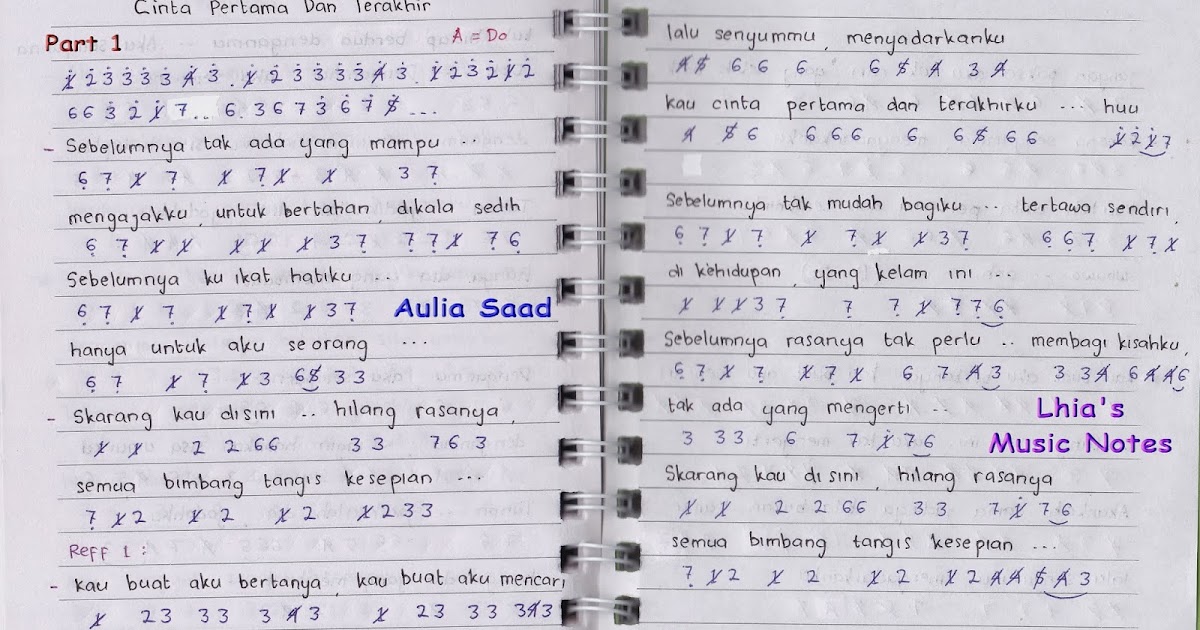 Cinta Pertama Dan Terakhir
Part 1
A = Do
1̸̇ 2̇ 3̇ 3̇ 3̇ 3̇ 4̸̇ 3̇ . 1̸̇ 2̇ 3̇ 3̇ 3̇ 3̇ 4̸̇ 3̇ . 1̸̇ 2̇ 3̇ 2̇ 1̸̇ 2̇
6 6 3̇ 2̇ 1̸̇ 7 ... 6 . 3 6 7 3̇ 6 7̇ 5̸̇ ...
- Sebelumnya tak ada yang mampu ..
6̣ 7̣ 1̸ 7̣ 1̸ 7̣ 1̸ 1̸ 3 7̣
mengajakku, untuk bertahan, dikala sedih
6̣ 7̣ 1̸ 1̸ 1̸ 1̸ 1̸ 3 7̣ 7̣ 7̣ 1̸ 7̣ 6̣
Sebelumnya ku ikat hatiku ...
6̣ 7̣ 1̸ 7̣ 1̸ 7̣ 1̸ 1̸ 3 7̣
Aulia Saad
hanya untuk aku seorang ...
6̣ 7̣ 1̸ 7̣ 1̸ 3 6 5̸ 3 3
- Skarang kau disini .. hilang rasanya,
1̸ 1̸ 2 2 6 6 3 3 7 6 3
semua bimbang tangis kesepian ...
7̣ 1̸ 2 1̸ 2 1̸ 2 1̸ 2 3 3
Reff 1 :
- kau buat aku bertanya, kau buat aku mencari
1̸ 2 3 3 3 3 4̸ 3 1̸ 2 3 3 3 3 4̸ 3
lalu senyummu, menyadarkanku
4̸ 5̸ 6 6 6 6 5̸ 4̸ 3 4̸
kau cinta pertama dan terakhirku ... huu
4̸ 5̸ 6 6 6 6 6 6 5̸ 6 6 1̸̇ 2̇ 1̸̇ 7
Sebelumnya tak mudah bagiku ... tertawa sendiri,
6̣ 7̣ 1̸ 7̣ 1̸ 7̣ 1̸ 1̸ 3 7̣ 6̣ 6̣ 7̣ 1̸ 7̣ 1̸
di kehidupan, yang kelam ini ...
1̸ 1̸ 1̸ 3 7̣ 7̣ 7̣ 1̸ 7̣ 7̣ 6̣
Sebelumnya rasanya tak perlu .. membagi kisahku,
6̣ 7̣ 1̸ 7̣ 1̸ 7̣ 1̸ 6 7 4̸ 3 3 3 4̸ 6 4̸ 4̸ 6
tak ada yang mengerti ..
3 3 3 6 7 1̸̇ 7 6
Lhia's
Music Notes
Skarang kau disini, hilang rasanya
1̸ 1̸ 2 2 6 6 3 3 7 1̸̇ 7 6
semua bimbang tangis kesepian ...
7̣ 1̸ 2 1̸ 2 1̸ 2 1̸ 2 4̸ 4̸ 5̸ 4̸ 3